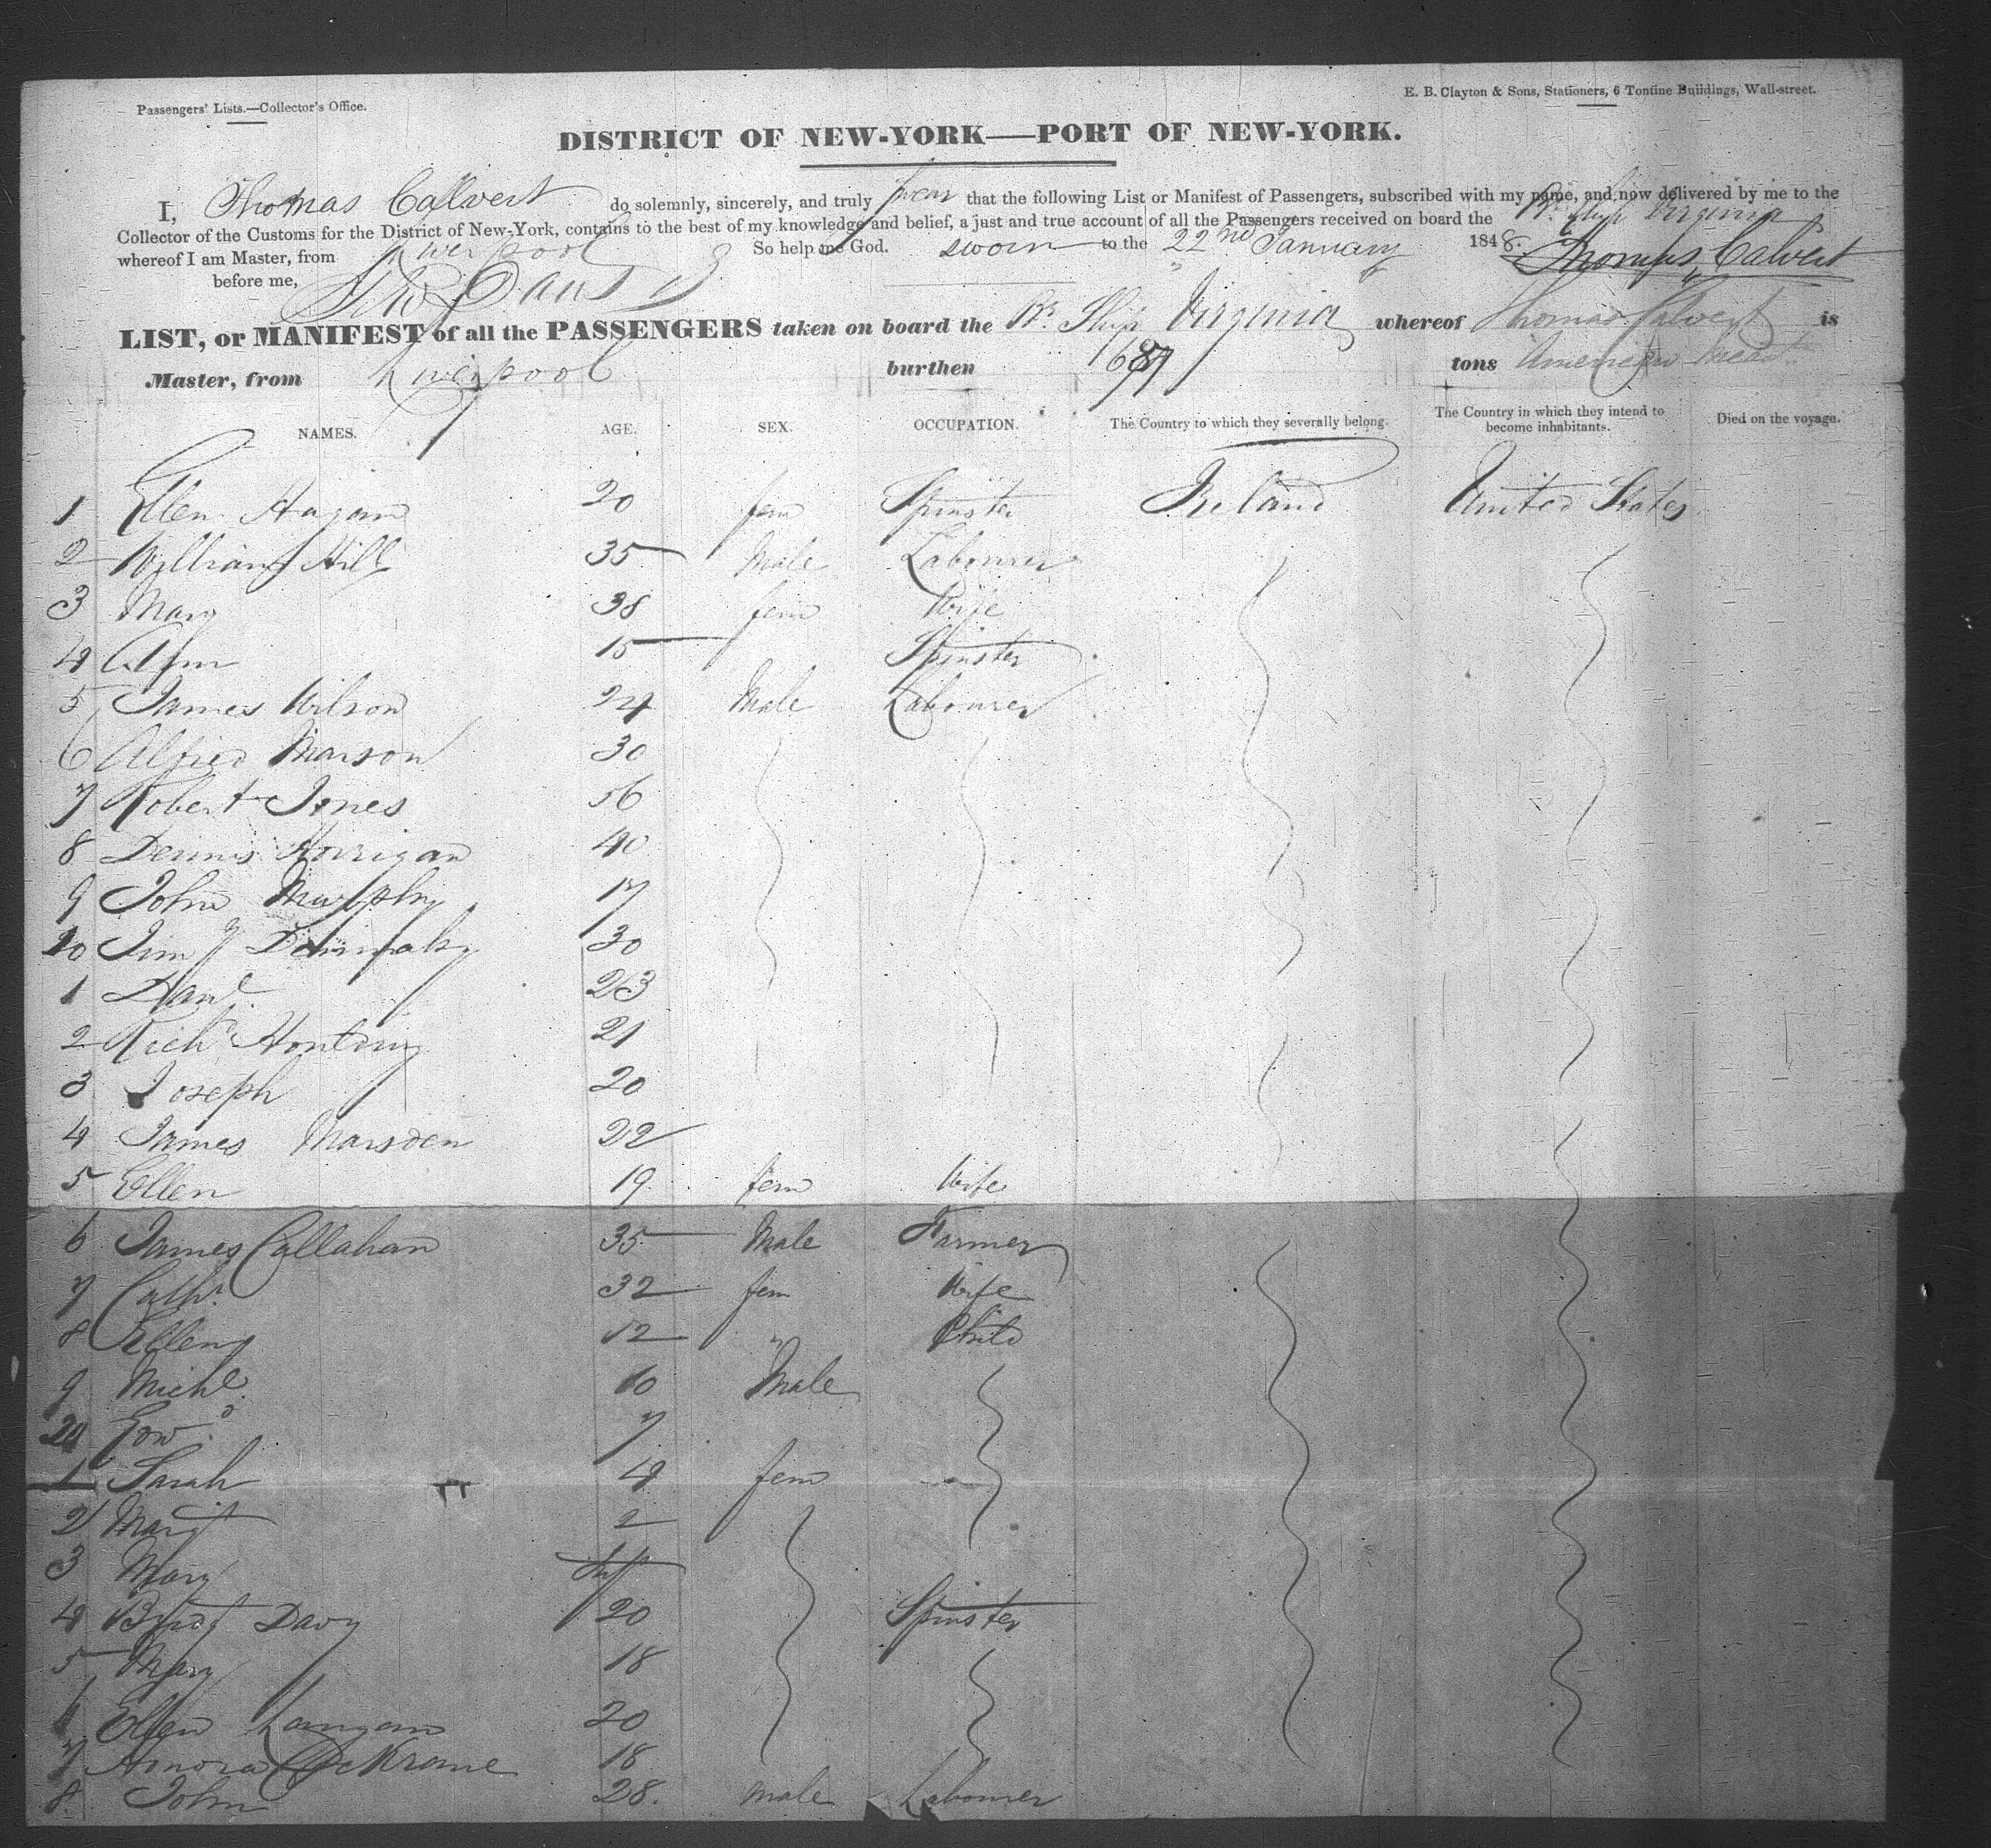 Passengers' Lists.—Collector's Office.
E. B. Clayton & Sons, Stationers, 6 Tontine Buildings, Wall-street.
DISTRICT OF NEW-YORK—PORT OF NEW-YORK.
I, Thomas Calvert do solemnly, sincerely, and truly swear that the following List or Manifest of Passengers, subscribed with my name, and now delivered by me to the
Collector of the Customs for the District of New-York, contains to the best of my knowledge and belief, a just and true account of all the Passengers received on board the Br. Ship Virginia
whereof I am Master, from Liverpool So help me God. sworn to the 22nd January 1848. Thomas Calvert
before me,
LIST, or MANIFEST of all the PASSENGERS taken on board the Br. Ship Virginia whereof Thomas Calvert is
Master, from Liverpool burthen tons American
NAMES. AGE. SEX. OCCUPATION. The Country to which they severally belong. The Country in which they intend to become inhabitants. Died on the voyage.
1 Ellen Hagan 20 fem Spinster Ireland United States
2 William Hill 35 Male Labourer
3 Mary 38 fem Wife
4 Ann 15 Spinster
5 James Wilson 24 Male Labourer
6 Alfred Marson 30
7 Robert Jones 56
8 Dennis Horrigan 40
9 John Murphy 17
10 30
1 Danl. 23
2 Richd 21
3 Joseph 20
4 James Marsden 22
5 Ellen 19 fem Wife
6 James Callahan 35 Male Farmer
7 Cathr. 32 fem Wife
8 Ellen 12 " Child
9 Michl. 10 Male
20 Edwd. 7
1 Sarah 4 fem
2 Margt 2
3 Mary inf
4 Bridgt Davy 20 Spinster
5 Mary 18
6 Ellen Langan 20
7 Honora 18
8. John 28. male Labourer